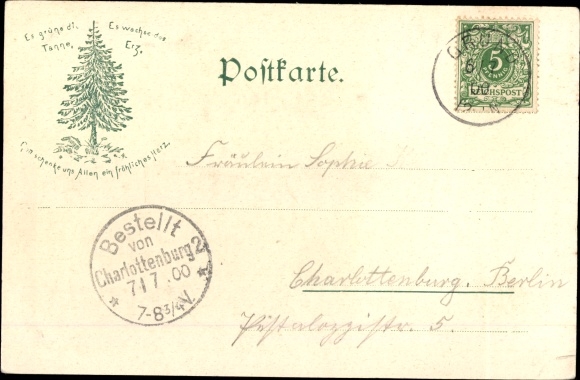 Es grüne di. Es wachse das
Tanne, Erz,
Gott schenke uns Allen ein fröhliches Herz.
Postkarte.
5
REICHSPOST
Fräulein Sophie
Bestellt
von
Charlottenburg 2
7 00
7-8 3/4 V.
Charlottenburg. Berlin
Pestalozzistr. 5.